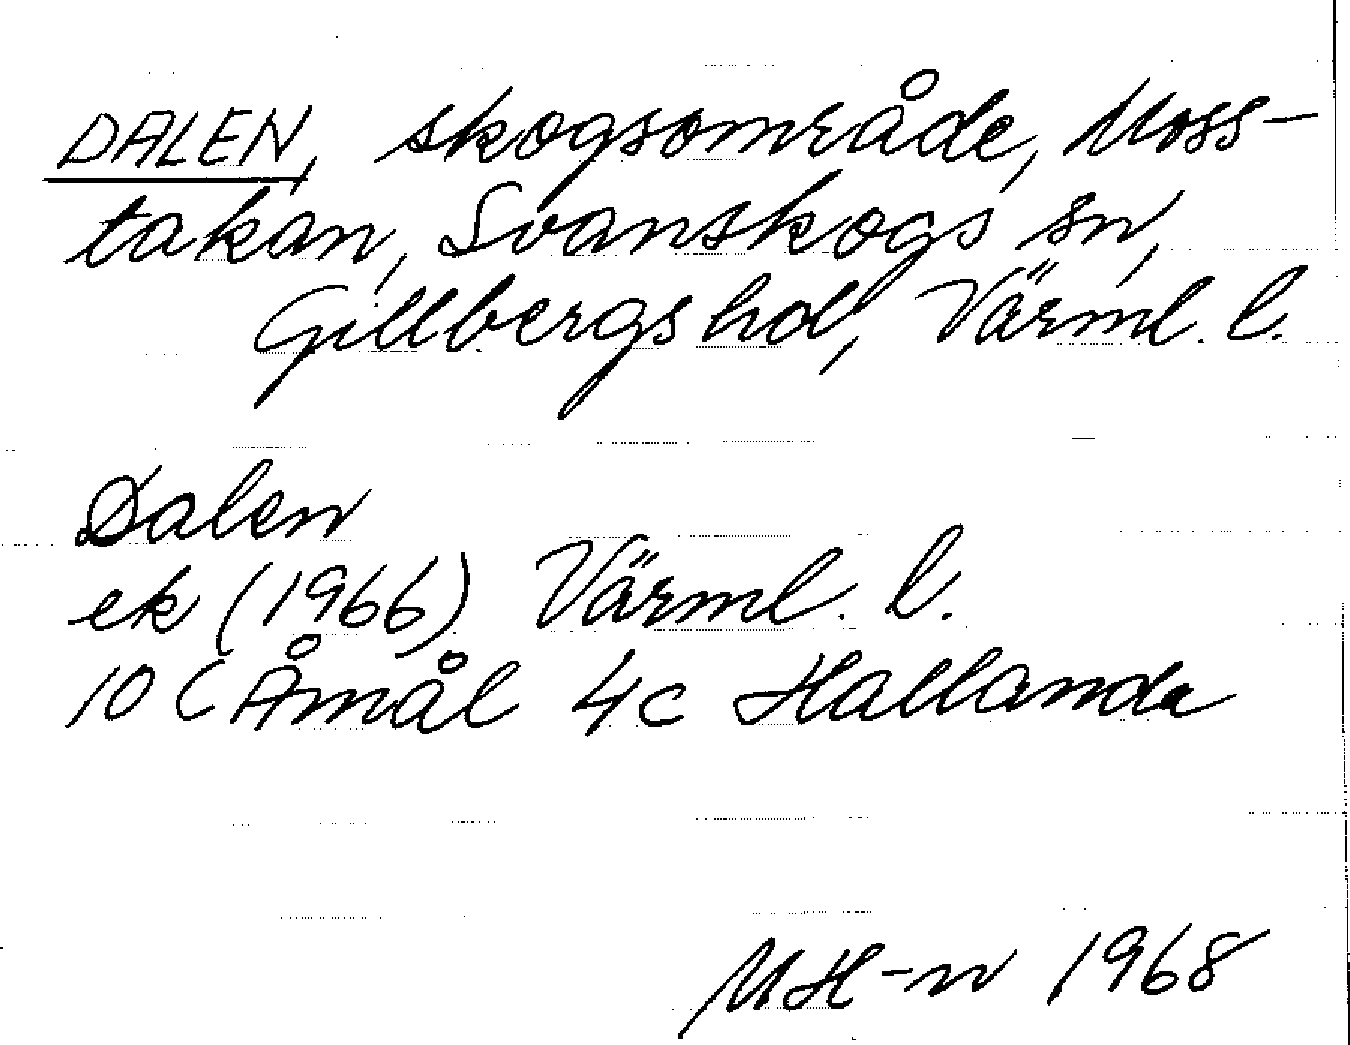 DALEN, skogsområde, Moss-
takan, Svanskogs sn,
Gillbergs hd, Värml. l.
Dalen
ek (1966) Värml. l.
10 C Åmål 4c Hallanda
MH-n 1968